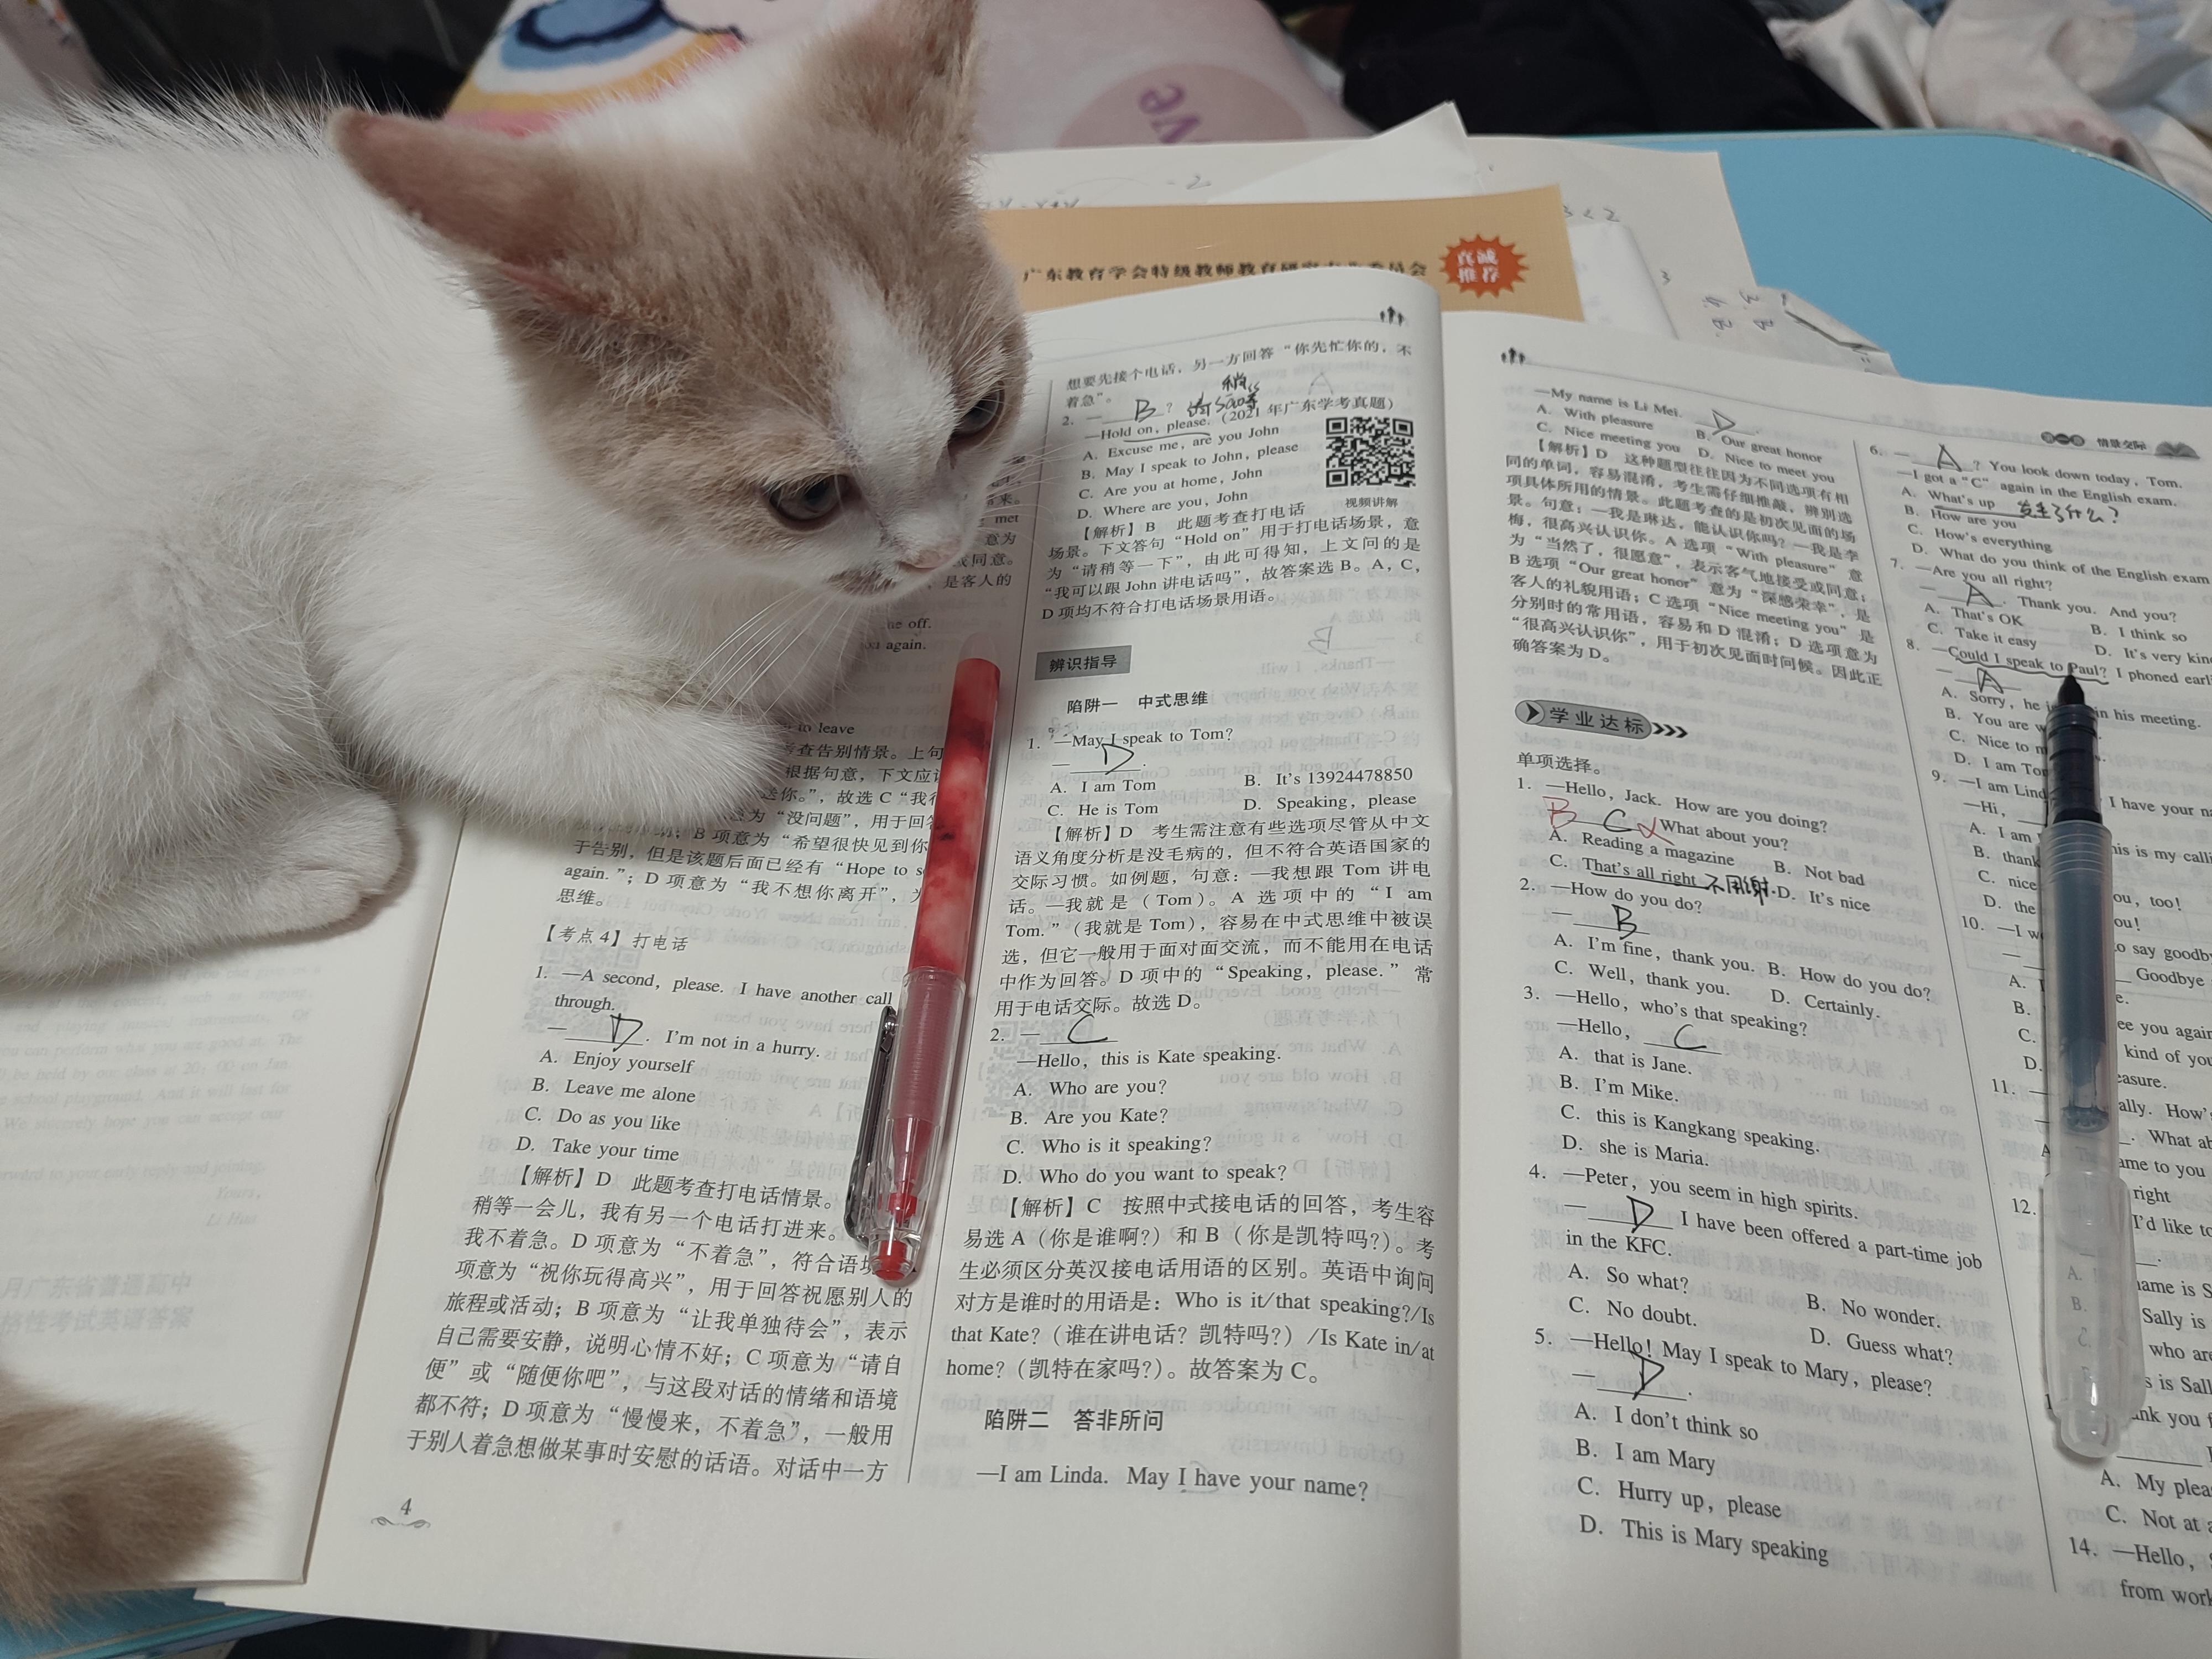 ve
-2
3<2
3
广东教育学会特级教师教育研究专业委员会
真诚
推荐
met
意为
或同意。
是客人的
me off.
again.
to leave
考查告别情景。上句
根据句意，下文应
送你。”，故选 C“我
为“没问题”，用于回答
B 项意为“希望很快见到你
于告别，但是该题后面已经有“Hope to
again.”；D 项意为“我不想你离开”，
思维。
【考点 4】打电话
1. —A second, please. I have another call
through.
— D . I'm not in a hurry.
A. Enjoy yourself
B. Leave me alone
C. Do as you like
D. Take your time
【解析】D 此题考查打电话情景。
稍等一会儿，我有另一个电话打进来。
我不着急。D 项意为“不着急”，符合语境
项意为“祝你玩得高兴”，用于回答祝愿别人的
旅程或活动；B 项意为“让我单独待会”，表示
自己需要安静，说明心情不好；C 项意为“请自
便”或“随便你吧”，与这段对话的情绪和语境
都不符；D 项意为“慢慢来，不着急”，一般用
于别人着急想做某事时安慰的话语。对话中一方
4
想要先接个电话，另一方回答“你先忙你的，不
着急”。
2. — B ?
—Hold on, please. (2021 年广东学考真题)
A. Excuse me, are you John
B. May I speak to John, please
C. Are you at home, John
D. Where are you, John
视频讲解
【解析】B 此题考查打电话
场景。下文答句“Hold on”用于打电话场景，意
为“请稍等一下”，由此可得知，上文问的是
“我可以跟 John 讲电话吗”，故答案选 B。A，C，
D 项均不符合打电话场景用语。
辨识指导
陷阱一 中式思维
1. —May I speak to Tom?
— D .
A. I am Tom B. It's 13924478850
C. He is Tom D. Speaking, please
【解析】D 考生需注意有些选项尽管从中文
语义角度分析是没毛病的，但不符合英语国家的
交际习惯。如例题，句意：—我想跟 Tom 讲电
话。—我就是（Tom）。A 选项中的“I am
Tom.”（我就是 Tom），容易在中式思维中被误
选，但它一般用于面对面交流，而不能用在电话
中作为回答。D 项中的“Speaking, please.”常
用于电话交际。故选 D。
2. — C
—Hello, this is Kate speaking.
A. Who are you?
B. Are you Kate?
C. Who is it speaking?
D. Who do you want to speak?
【解析】C 按照中式接电话的回答，考生容
易选 A（你是谁啊？）和 B（你是凯特吗？）。考
生必须区分英汉接电话用语的区别。英语中询问
对方是谁时的用语是：Who is it/that speaking?/Is
that Kate?（谁在讲电话？凯特吗？）/Is Kate in/at
home?（凯特在家吗？）。故答案为 C。
陷阱二 答非所问
—I am Linda. May I have your name?
情景交际
—My name is Li Mei. D .
A. With pleasure B. Our great honor
C. Nice meeting you D. Nice to meet you
【解析】D 这种题型往往因为不同选项有相
同的单词，容易混淆，考生需仔细推敲，辨别选
项具体所用的情景。此题考查的是初次见面的场
景。句意：—我是琳达，能认识你吗？—我是李
梅，很高兴认识你。A 选项“With pleasure”意
为“当然了，很愿意”，表示客气地接受或同意；
B 选项“Our great honor”意为“深感荣幸”，是
客人的礼貌用语；C 选项“Nice meeting you”是
分别时的常用语，容易和 D 混淆；D 选项意为
“很高兴认识你”，用于初次见面时问候。因此正
确答案为 D。
学业达标
单项选择。
1. —Hello, Jack. How are you doing?
B C What about you?
A. Reading a magazine B. Not bad
C. That's all right 不用谢. D. It's nice
2. —How do you do?
— B
A. I'm fine, thank you. B. How do you do?
C. Well, thank you. D. Certainly.
3. —Hello, who's that speaking?
—Hello, C
A. that is Jane.
B. I'm Mike.
C. this is Kangkang speaking.
D. she is Maria.
4. —Peter, you seem in high spirits.
— D I have been offered a part-time job
in the KFC.
A. So what? B. No wonder.
C. No doubt. D. Guess what?
5. —Hello! May I speak to Mary, please?
— D .
A. I don't think so
B. I am Mary
C. Hurry up, please
D. This is Mary speaking
6. — A ? You look down today, Tom.
—I got a “C” again in the English exam.
A. What's up 发生了什么？
B. How are you
C. How's everything
D. What do you think of the English exam
7. —Are you all right?
— A . Thank you. And you?
A. That's OK B. I think so
C. Take it easy D. It's very
8. —Could I speak to Paul? I phoned
— A
A. Sorry, he in his meeting.
B. You are
C. Nice to
D. I am
9. —I am I have your
—Hi, this is my
A. I am
B.
C. nice you, too!
D. the you!
10. —I to say
— Goodbye
A.
B.
C. see you again
D. kind of
11. —
pleasure.
How's
What
A
came to you
right
12.
I'd like to
name is
Sally is
who are
is
A. My
C. Not at
14. —Hello,
from